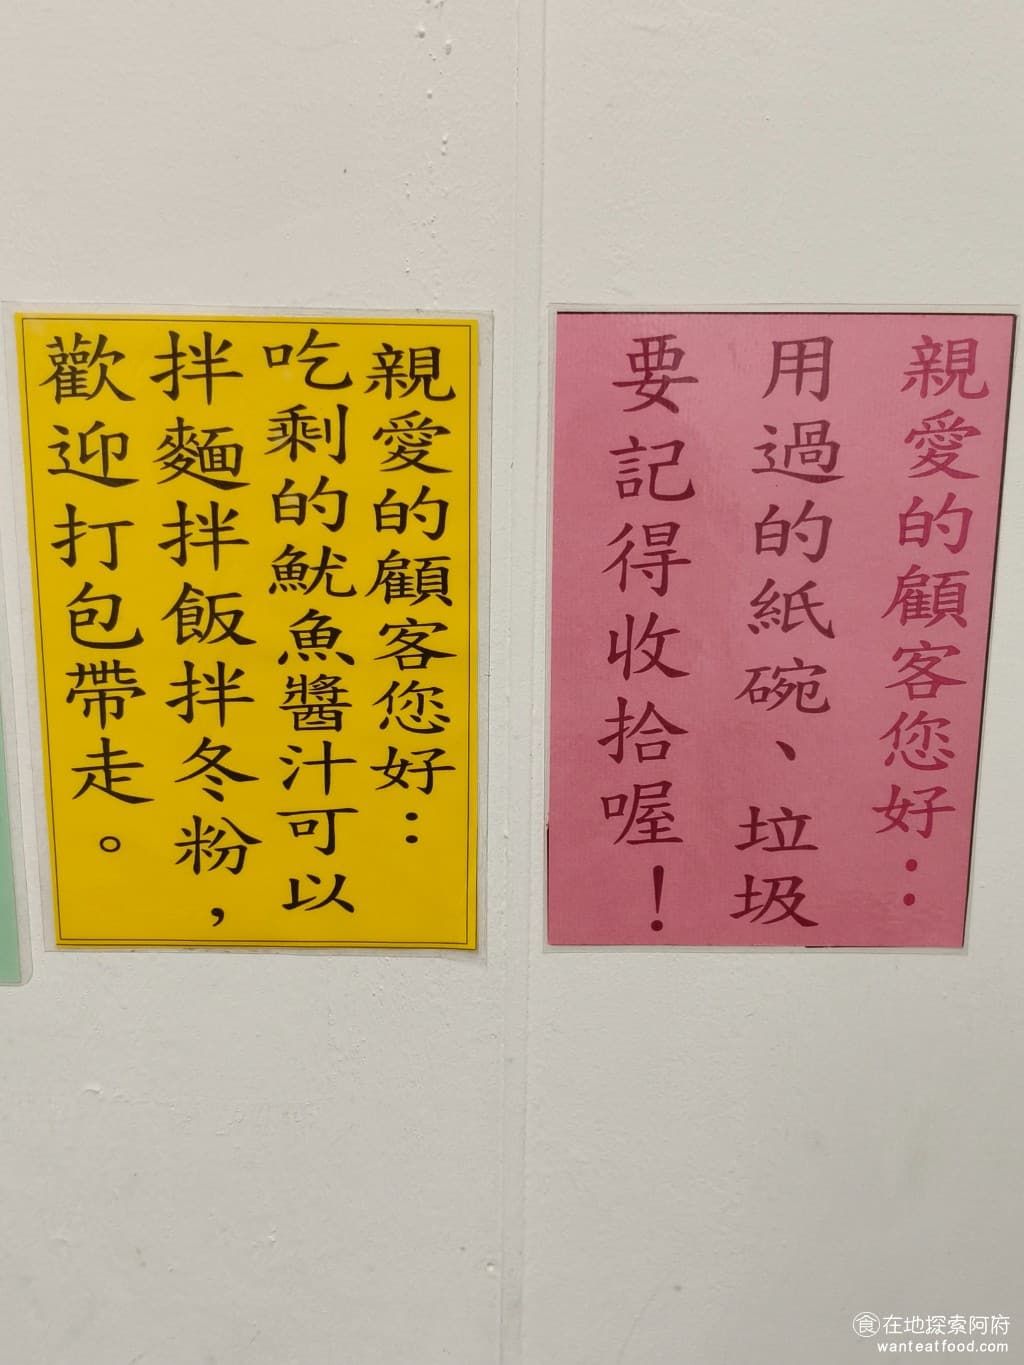 親愛的顧客您好：
用過的紙碗、垃圾
要記得收拾喔！
親愛的顧客您好：
吃剩的魷魚醬汁可以
拌麵拌飯拌冬粉，
歡迎打包帶走。
食在地探索阿府
wanteatfood.com